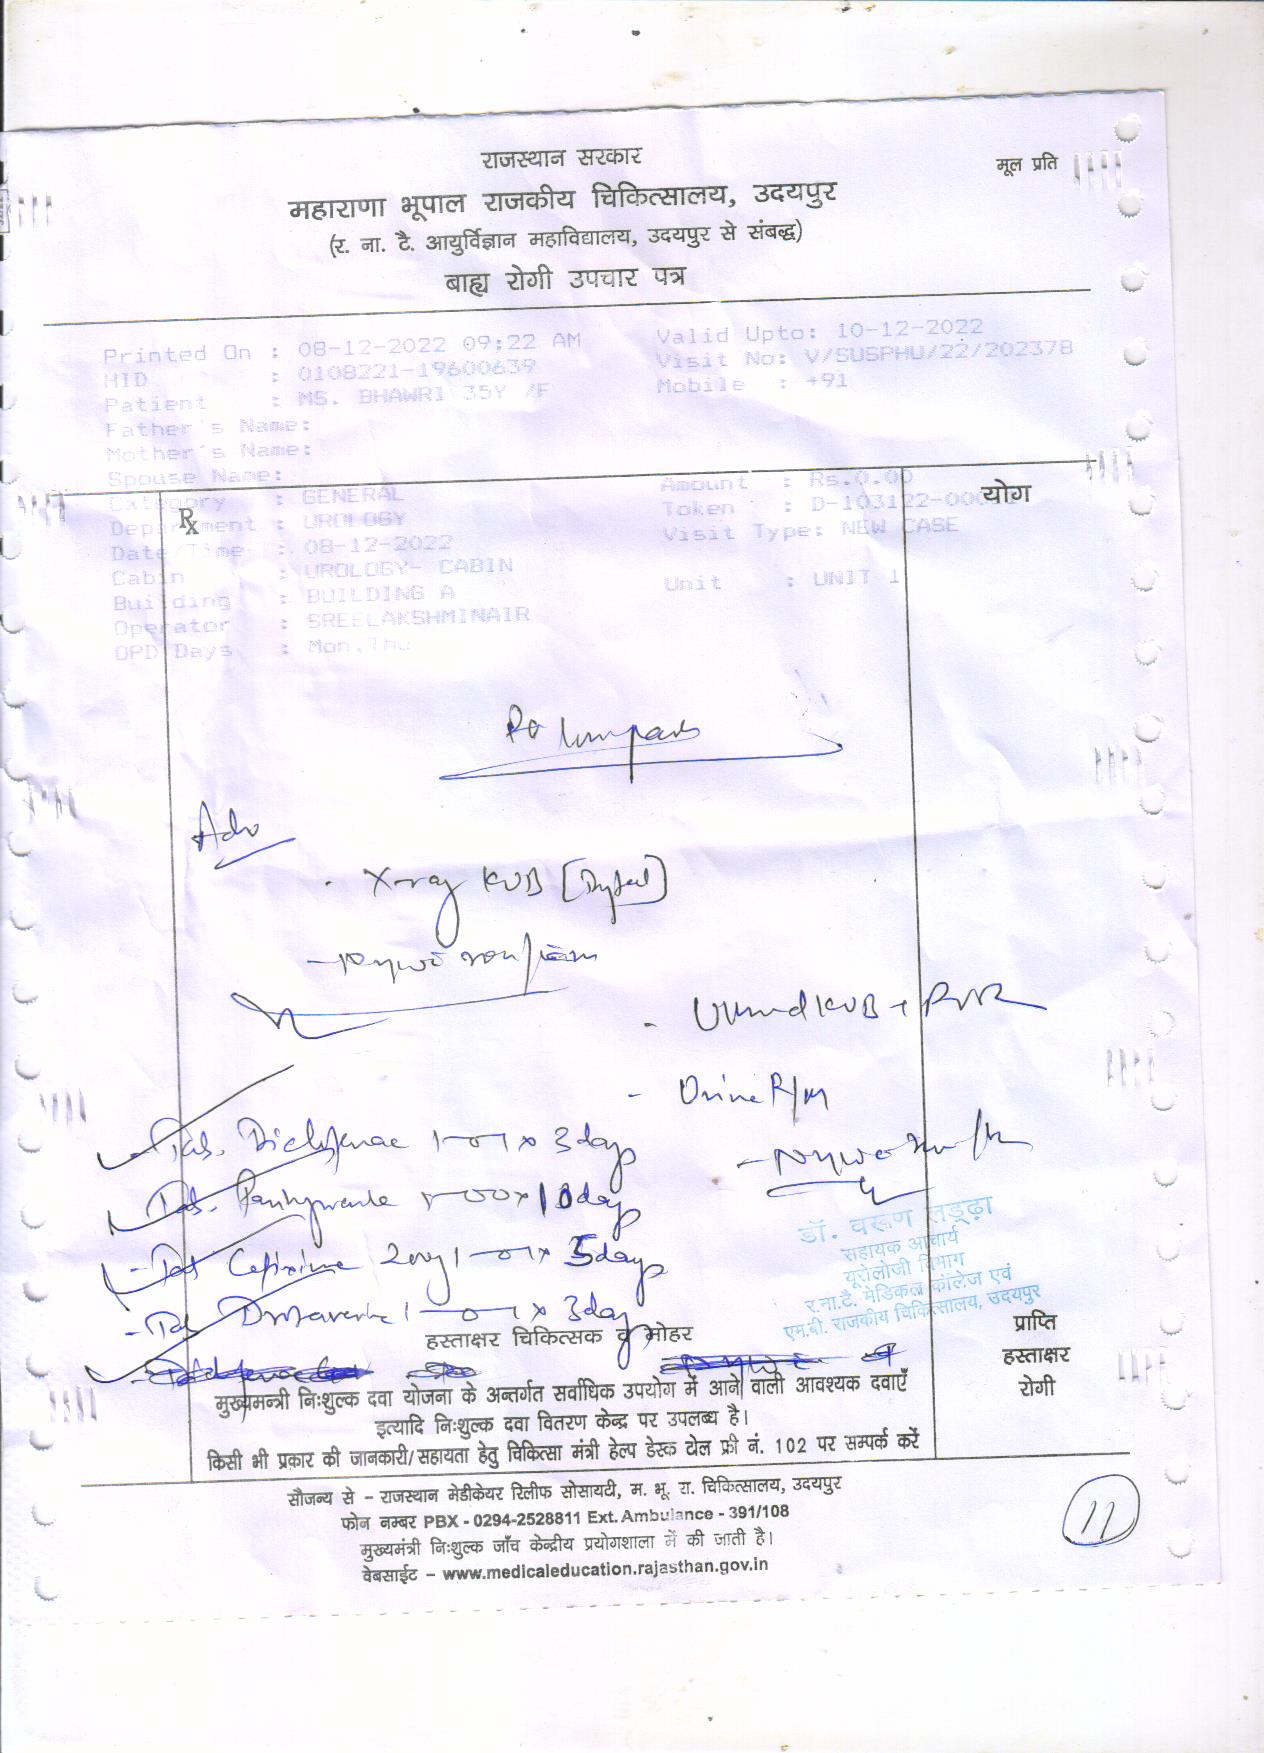 राजस्थान सरकार
मूल प्रति
महाराणा भूपाल राजकीय चिकित्सालय, उदयपुर
(र. ना. टै. आयुर्विज्ञान महाविद्यालय, उदयपुर से संबद्ध)
बाह्य रोगी उपचार पत्र
Printed On : 08-12-2022 09:22 AM Valid Upto: 10-12-2022
HID : 0108221-19600639 Visit No: V/SUSPHU/22/202378
Patient : MS. BHAWRI 35Y /F Mobile : +91
Father's Name:
Mother's Name:
Spouse Name:
Category : GENERAL Amount : Rs.0.00
Department : UROLOGY Token : D-103122-000
Date/Time : 08-12-2022 Visit Type: NEW CASE
Cabin : UROLOGY- CABIN
Building : BUILDING A Unit : UNIT 1
Operator : SREELAKSHMINAIR
OPD Days : Mon,Thu
℞
योग
Adv
- X-ray KUB
- KUB + PVR
- Urine R/M
- Tab. Diclofenac 1-0-1 x 3 days
- Tab. 1-0-0 x 10 days
- Tab Cefixime 200mg 1-0-1 x 5 days
- Tab 1-0-1 x 3 days
डॉ. वरूण लड्ढ़ा
सहायक आचार्य
यूरोलोजी विभाग
र.ना.टै. मेडिकल कॉलेज एवं
एम.बी. राजकीय चिकित्सालय, उदयपुर
हस्ताक्षर चिकित्सक व मोहर
प्राप्ति
हस्ताक्षर
रोगी
मुख्यमन्त्री निःशुल्क दवा योजना के अन्तर्गत सर्वाधिक उपयोग में आने वाली आवश्यक दवाएँ
इत्यादि निःशुल्क दवा वितरण केन्द्र पर उपलब्ध है।
किसी भी प्रकार की जानकारी/सहायता हेतु चिकित्सा मंत्री हेल्प डेस्क टोल फ्री नं. 102 पर सम्पर्क करें
सौजन्य से – राजस्थान मेडीकेयर रिलीफ सोसायटी, म. भू. रा. चिकित्सालय, उदयपुर
फोन नम्बर PBX - 0294-2528811 Ext. Ambulance - 391/108
मुख्यमंत्री निःशुल्क जाँच केन्द्रीय प्रयोगशाला में की जाती है।
वेबसाईट – www.medicaleducation.rajasthan.gov.in
11